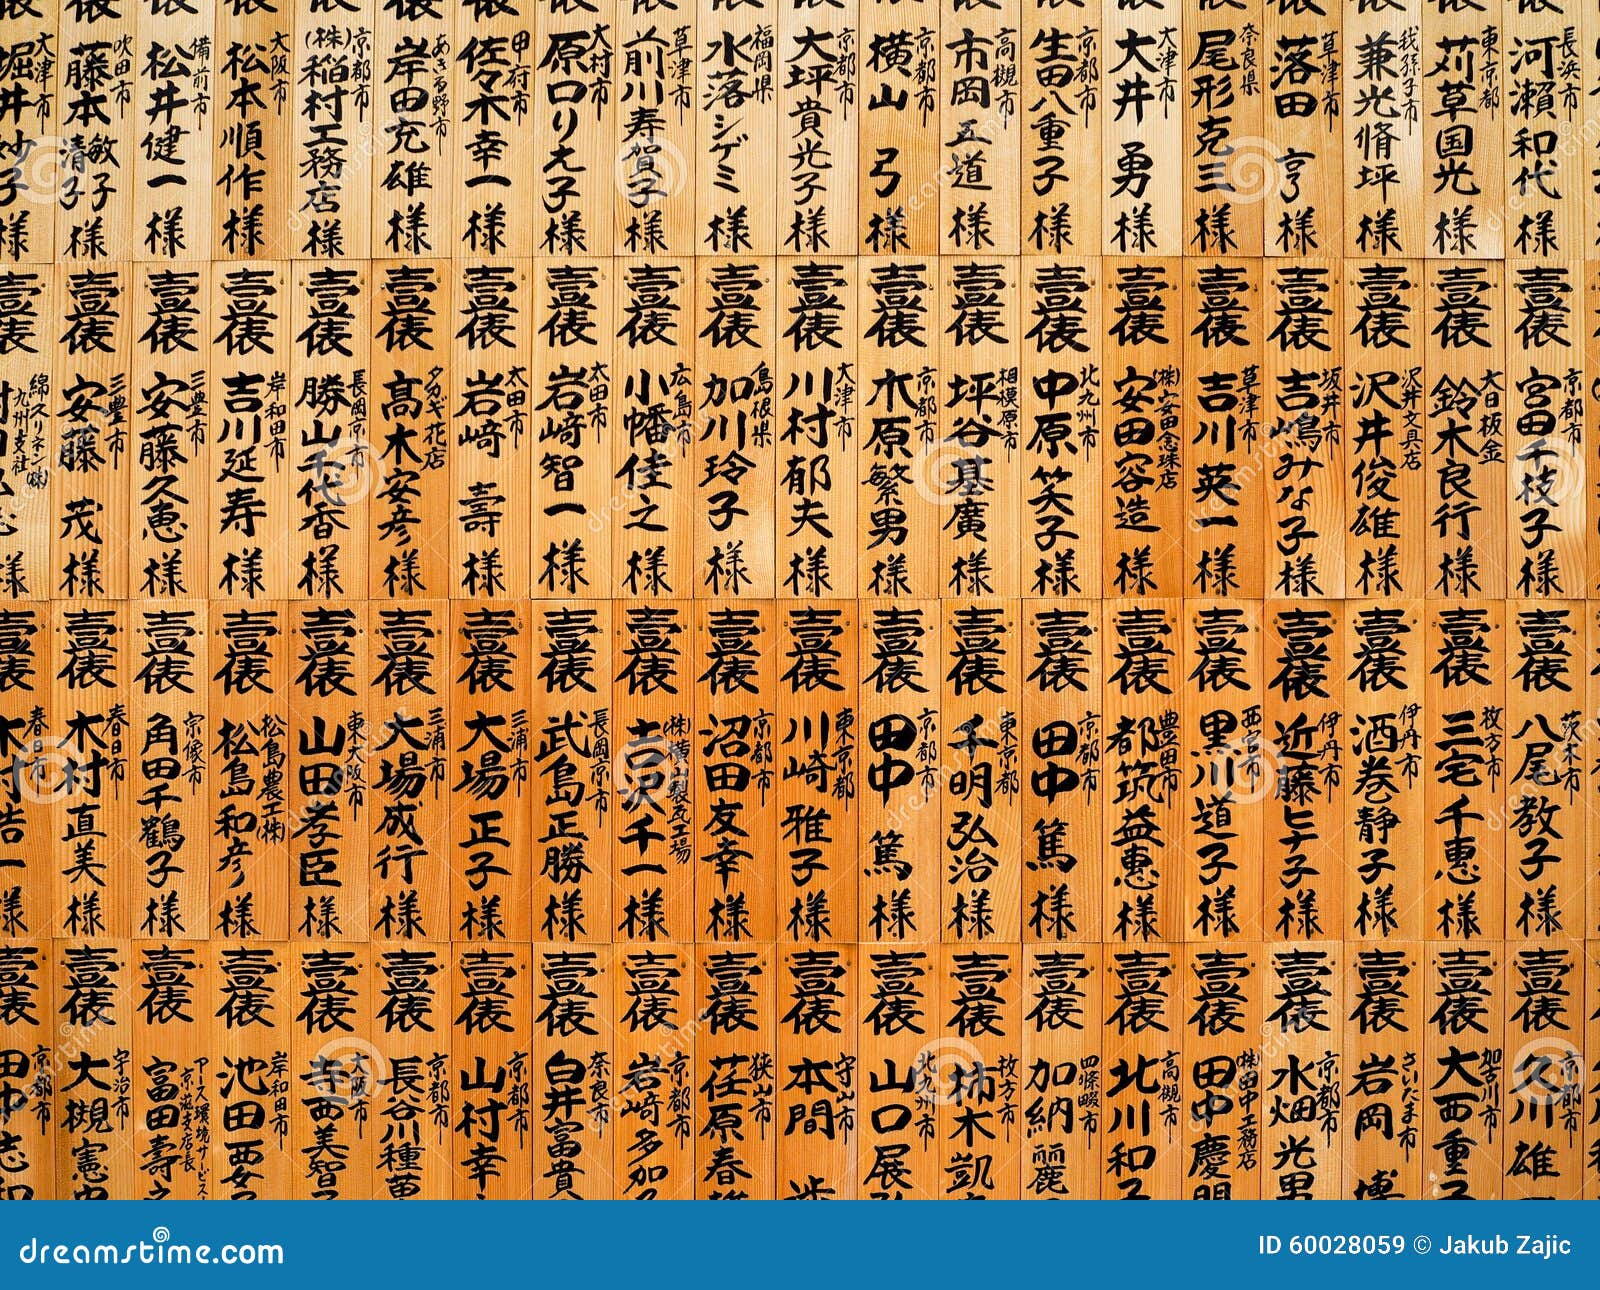 長浜市 河瀬和代様
東京都 苅草国光様
我孫子市 兼光脩坪様
草津市 落田 亨様
奈良県 尾形克三様
大津市 大井 勇様
京都市 生田八重子様
高槻市 市岡五道様
京都市 横山 弓様
京都市 大坪貴光子様
福岡県 水落シゲミ様
草津市 前川寿賀子様
大村市 原口りえ子様
甲府市 佐々木幸一様
あきる野市 岸田充雄様
京都市 (株)稲村工務店様
大阪市 松本順作様
備前市 松井健一様
吹田市 藤本敏子 清子様
大津市 堀井妙子様
壹俵 京都市 宮田千枝子様
壹俵 大日板金 鈴木良行様
壹俵 沢井文具店 沢井俊雄様
壹俵 坂井市 吉嶋みな子様
壹俵 草津市 吉川英一様
壹俵 (株)安田念珠店 安田容造様
壹俵 北九州市 中原笑子様
壹俵 相模原市 坪谷基廣様
壹俵 京都市 木原繁男様
壹俵 大津市 川村郁夫様
壹俵 島根県 加川玲子様
壹俵 広島市 小幡佳之様
壹俵 太田市 岩﨑智一様
壹俵 太田市 岩﨑 壽様
壹俵 タカギ花店 髙木安彦様
壹俵 長岡京市 勝山千代香様
壹俵 岸和田市 吉川延寿様
壹俵 三豊市 安藤久恵様
壹俵 三豊市 安藤 茂様
壹俵 綿スリネン(株) 九州支社 様
壹俵 茨木市 八尾教子様
壹俵 枚方市 三宅千恵様
壹俵 伊丹市 酒巻静子様
壹俵 伊丹市 近藤ヒナ子様
壹俵 西宮市 黒川道子様
壹俵 豊田市 都筑益恵様
壹俵 京都市 田中 篤様
壹俵 東京都 千明弘治様
壹俵 京都市 田中 篤様
壹俵 東京都 川崎雅子様
壹俵 京都市 沼田友幸様
壹俵 (株)横山製瓦工場 吉沢千一様
壹俵 長岡京市 武島正勝様
壹俵 三浦市 大場正子様
壹俵 三浦市 大場成行様
壹俵 東大阪市 山田孝臣様
壹俵 松島農工(株) 松島和彦様
壹俵 宗像市 角田千鶴子様
壹俵 春日市 木村直美様
壹俵 春日市 木村浩一様
壹俵 京都市 久川雄
壹俵 加古川市 大西重子
壹俵 さいたま市 岩岡 博
壹俵 京都市 水畑光男
壹俵 (株)田中工務店 田中慶明
壹俵 高槻市 北川和子
壹俵 四條畷市 加納麗
壹俵 枚方市 柿木凱
壹俵 北九州市 山口展
壹俵 守山市 本間 歩
壹俵 狭山市 荏原春
壹俵 京都市 岩崎多加
壹俵 奈良市 白井富貴
壹俵 京都市 山村幸
壹俵 京都市 長谷川種
壹俵 大阪市 寺西美智子
壹俵 岸和田市 池田要子
壹俵 アース環境サービス 京滋支店長 富田壽之
壹俵 宇治市 大槻憲
壹俵 京都市 田中志
dreamstime.com
ID 60028059 © Jakub Zajic